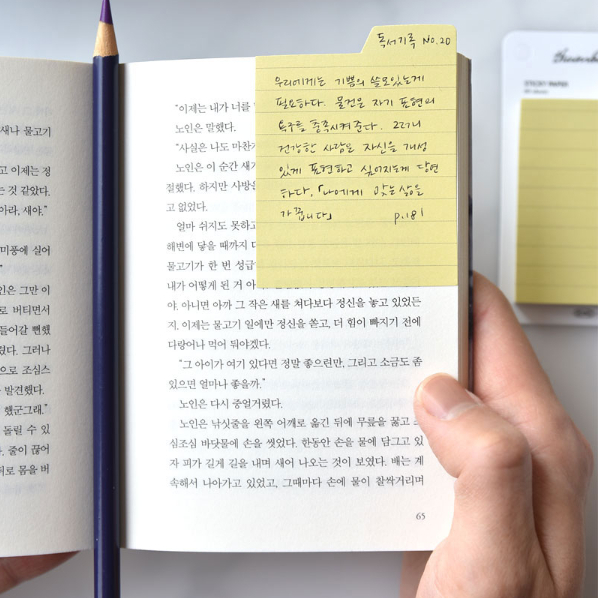 새나 물고기
고 이제는 정
는 것 같았다.
아라, 새야."
미풍에 실어
인은 그만 이
로 버티면서
들어갈 뻔했
렸다. 그러나
으로 조심스
발견했다.
했군그래."
돌릴 수 있
. 줄이 끊어
뒤로 몸을 버
"이제는 내가 너를
노인은 말했다.
"사실은 나도 마찬가
노인은 이 순간 새가
절했다. 하지만 사방을
고 없었다.
얼마 쉬지도 못하고
해변에 닿을 때까지
물고기가 한 번 성급
내가 어떻게 된 거 아
야. 아니면 아까 그 작은 새를 쳐다보다 정신을 놓고 있었든
지. 이제는 물고기 일에만 정신을 쏟고, 더 힘이 빠지기 전에
다랑어나 먹어 둬야겠다.
"그 아이가 여기 있다면 정말 좋으련만, 그리고 소금도 좀
있으면 얼마나 좋을까."
노인은 다시 중얼거렸다.
노인은 낚싯줄을 왼쪽 어깨로 옮긴 뒤에 무릎을 꿇고 조
심조심 바닷물에 손을 씻었다. 한동안 손을 물에 담그고 있
자 피가 길게 길을 내며 새어 나오는 것이 보였다. 배는 계
속해서 나아가고 있었고, 그때마다 손에 물이 찰싹거리며
65
독서기록 No.20
우리에게는 기쁨의 쓸모있는게
필요하다. 물건은 자기 표현의
욕구를 충족시켜준다. 그러니
건강한 사람은 자신을 개성
있게 표현하고 싶어지는게 당연
하다.「나에게 맞는 삶을
가꿉니다」 p.181
STICKY PAPER